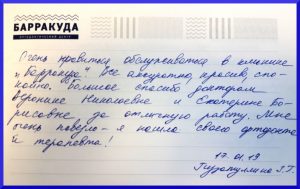 БАРРАКУДА
ОРТОДОНТИЧЕСКИЙ ЦЕНТР
Очень нравится обслуживаться в клинике
"Барракуда". Все аккуратно, красиво, спо-
койно. Большое спасибо докторам
Веронике Николаевне и Екатерине Бо-
рисовне за отличную работу. Мне
очень повезло - я нашла своего ортодонта
и терапевта!
17.01.19